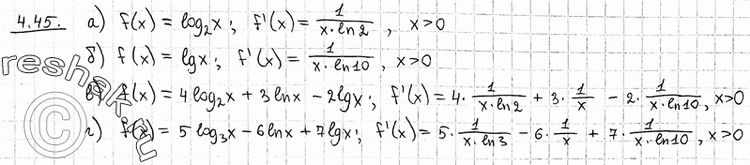 4.45. а) f(x) = log₂x; f'(x) = 1/(x·ln2), x>0
б) f(x) = lgx; f'(x) = 1/(x·ln10), x>0
в) f(x) = 4log₂x + 3lnx - 2lgx; f'(x) = 4·1/(x·ln2) + 3·1/x - 2·1/(x·ln10), x>0
г) f(x) = 5log₃x - 6lnx + 7lgx; f'(x) = 5·1/(x·ln3) - 6·1/x + 7·1/(x·ln10), x>0